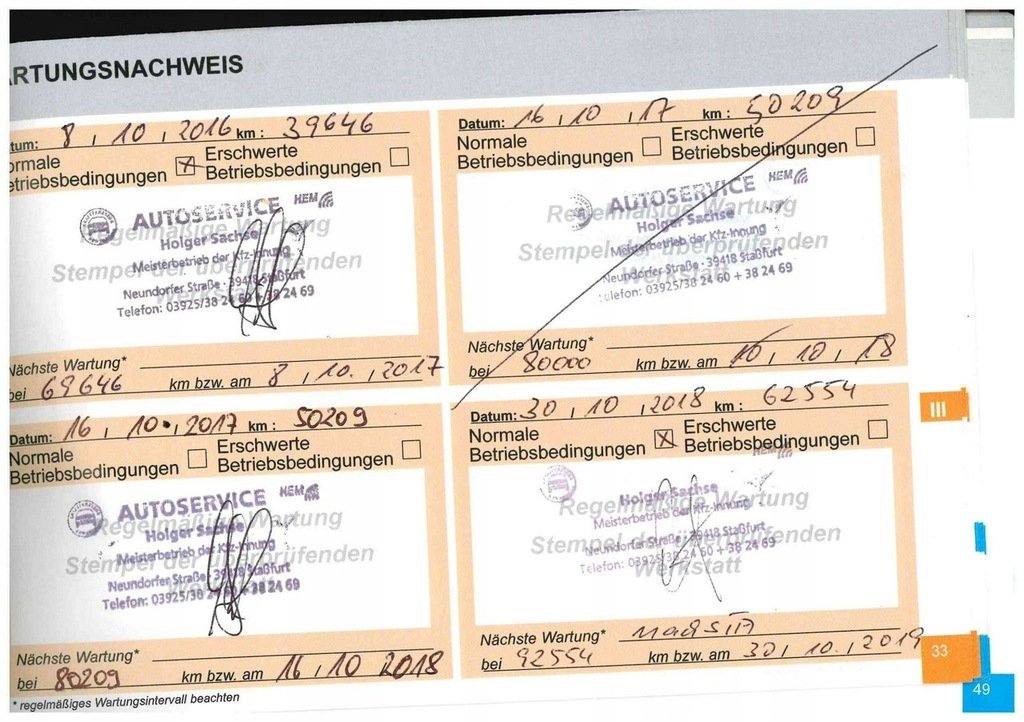 ARTUNGSNACHWEIS
tum: 8 / 10 / 2016 km : 39646
ormale
etriebsbedingungen ☒ Erschwerte
Betriebsbedingungen ☐
AUTOSERVICE HEM
Regelmäßige Wartung
Holger Sachse
Meisterbetrieb der Kfz-Innung
Stempel der überprüfenden
Werkstatt
Neundorfer Straße · 39418 Staßfurt
Telefon: 03925/38 24 60 + 38 24 69
Nächste Wartung*
bei 69646 km bzw. am 8 / 10. / 2017
Datum: 16 / 10 / 17 km : 50209
Normale
Betriebsbedingungen ☐ Erschwerte
Betriebsbedingungen ☐
AUTOSERVICE HEM
Regelmäßige Wartung
Holger Sachse
Meisterbetrieb der Kfz-Innung
Stempel der überprüfenden
Werkstatt
Neundorfer Straße · 39418 Staßfurt
Telefon: 03925/38 24 60 + 38 24 69
Nächste Wartung*
bei 80000 km bzw. am 10 / 10 / 18
Datum: 16 / 10 / 2017 km : 50209
Normale
Betriebsbedingungen ☐ Erschwerte
Betriebsbedingungen ☐
AUTOSERVICE HEM
Regelmäßige Wartung
Holger Sachse
Meisterbetrieb der Kfz-Innung
Stempel der überprüfenden
Werkstatt
Neundorfer Straße · 39418 Staßfurt
Telefon: 03925/38 24 60 + 38 24 69
Nächste Wartung*
bei 80209 km bzw. am 16 / 10 2018
Datum: 30 / 10 / 2018 km : 62554
Normale
Betriebsbedingungen ☒ Erschwerte
Betriebsbedingungen ☐
HEM
Regelmäßige Wartung
Holger Sachse
Meisterbetrieb der Kfz-Innung
Stempel der überprüfenden
Werkstatt
Neundorfer Straße · 39418 Staßfurt
Telefon: 03925/38 24 60 + 38 24 69
Nächste Wartung*
bei 92554 km bzw. am 30 / 10. / 2019
* regelmäßiges Wartungsintervall beachten
III
33
49